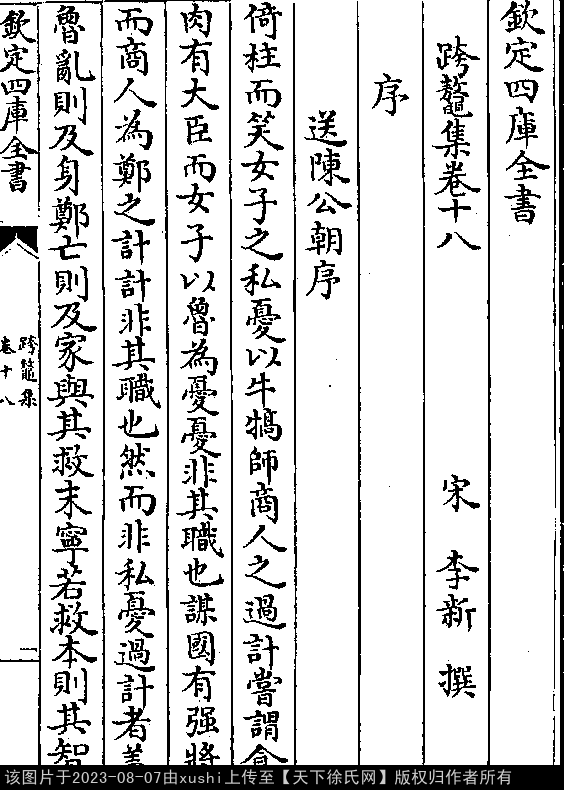 欽定四庫全書
跨鼇集卷十八
宋 李新 撰
序
送陳公朝序
倚柱而笑女子之私憂以牛犒師商人之過計嘗謂食
肉有大臣而女子以魯為憂憂非其職也謀國有强將
而商人為鄭之計計非其職也然而非私憂過計者蓋
魯亂則及身鄭亡則及家與其救末寧若救本則其智
欽定四庫全書
跨鼇集
卷十八
一
该图片于2023-08-07由xushi上传至【天下徐氏网】版权归作者所有